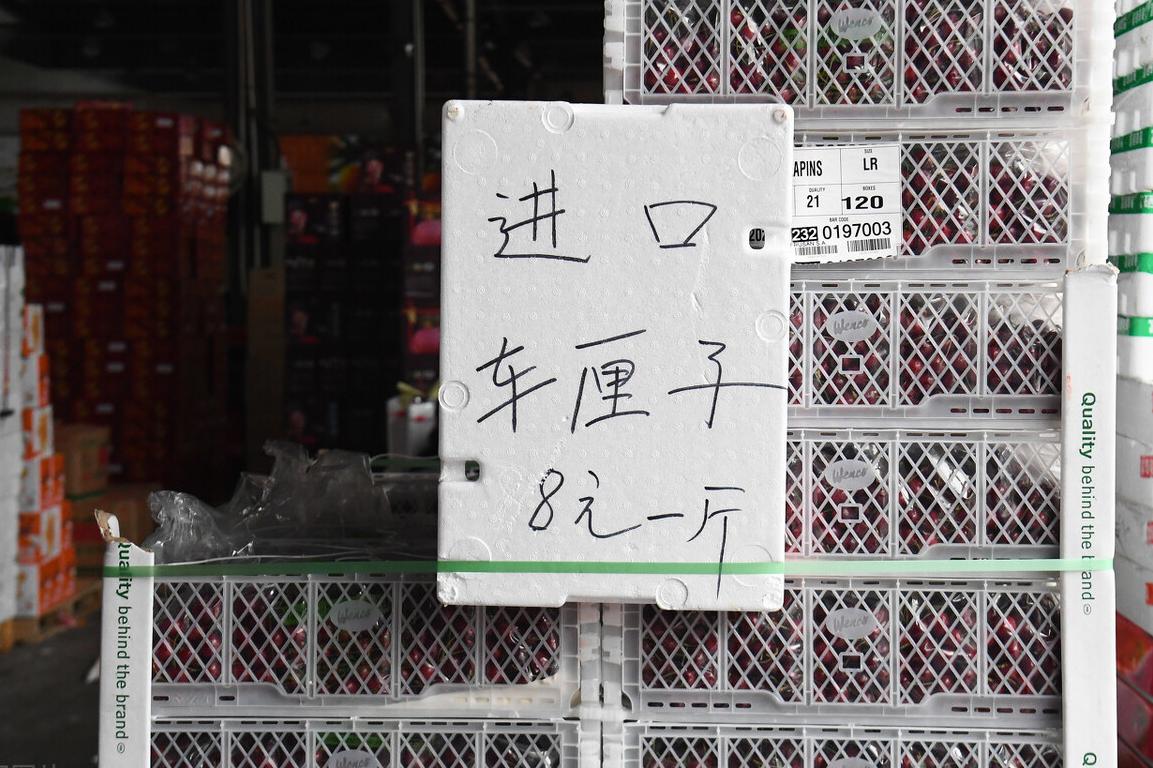 进口
车厘子
8元一斤
APINS
SIZE
LR
QUALITY
21
BOXES
120
BAR CODE
232 0197003
Wenco
Wenco
Wenco
Wenco
Wenco
Quality behind the brand
uality behind the brand